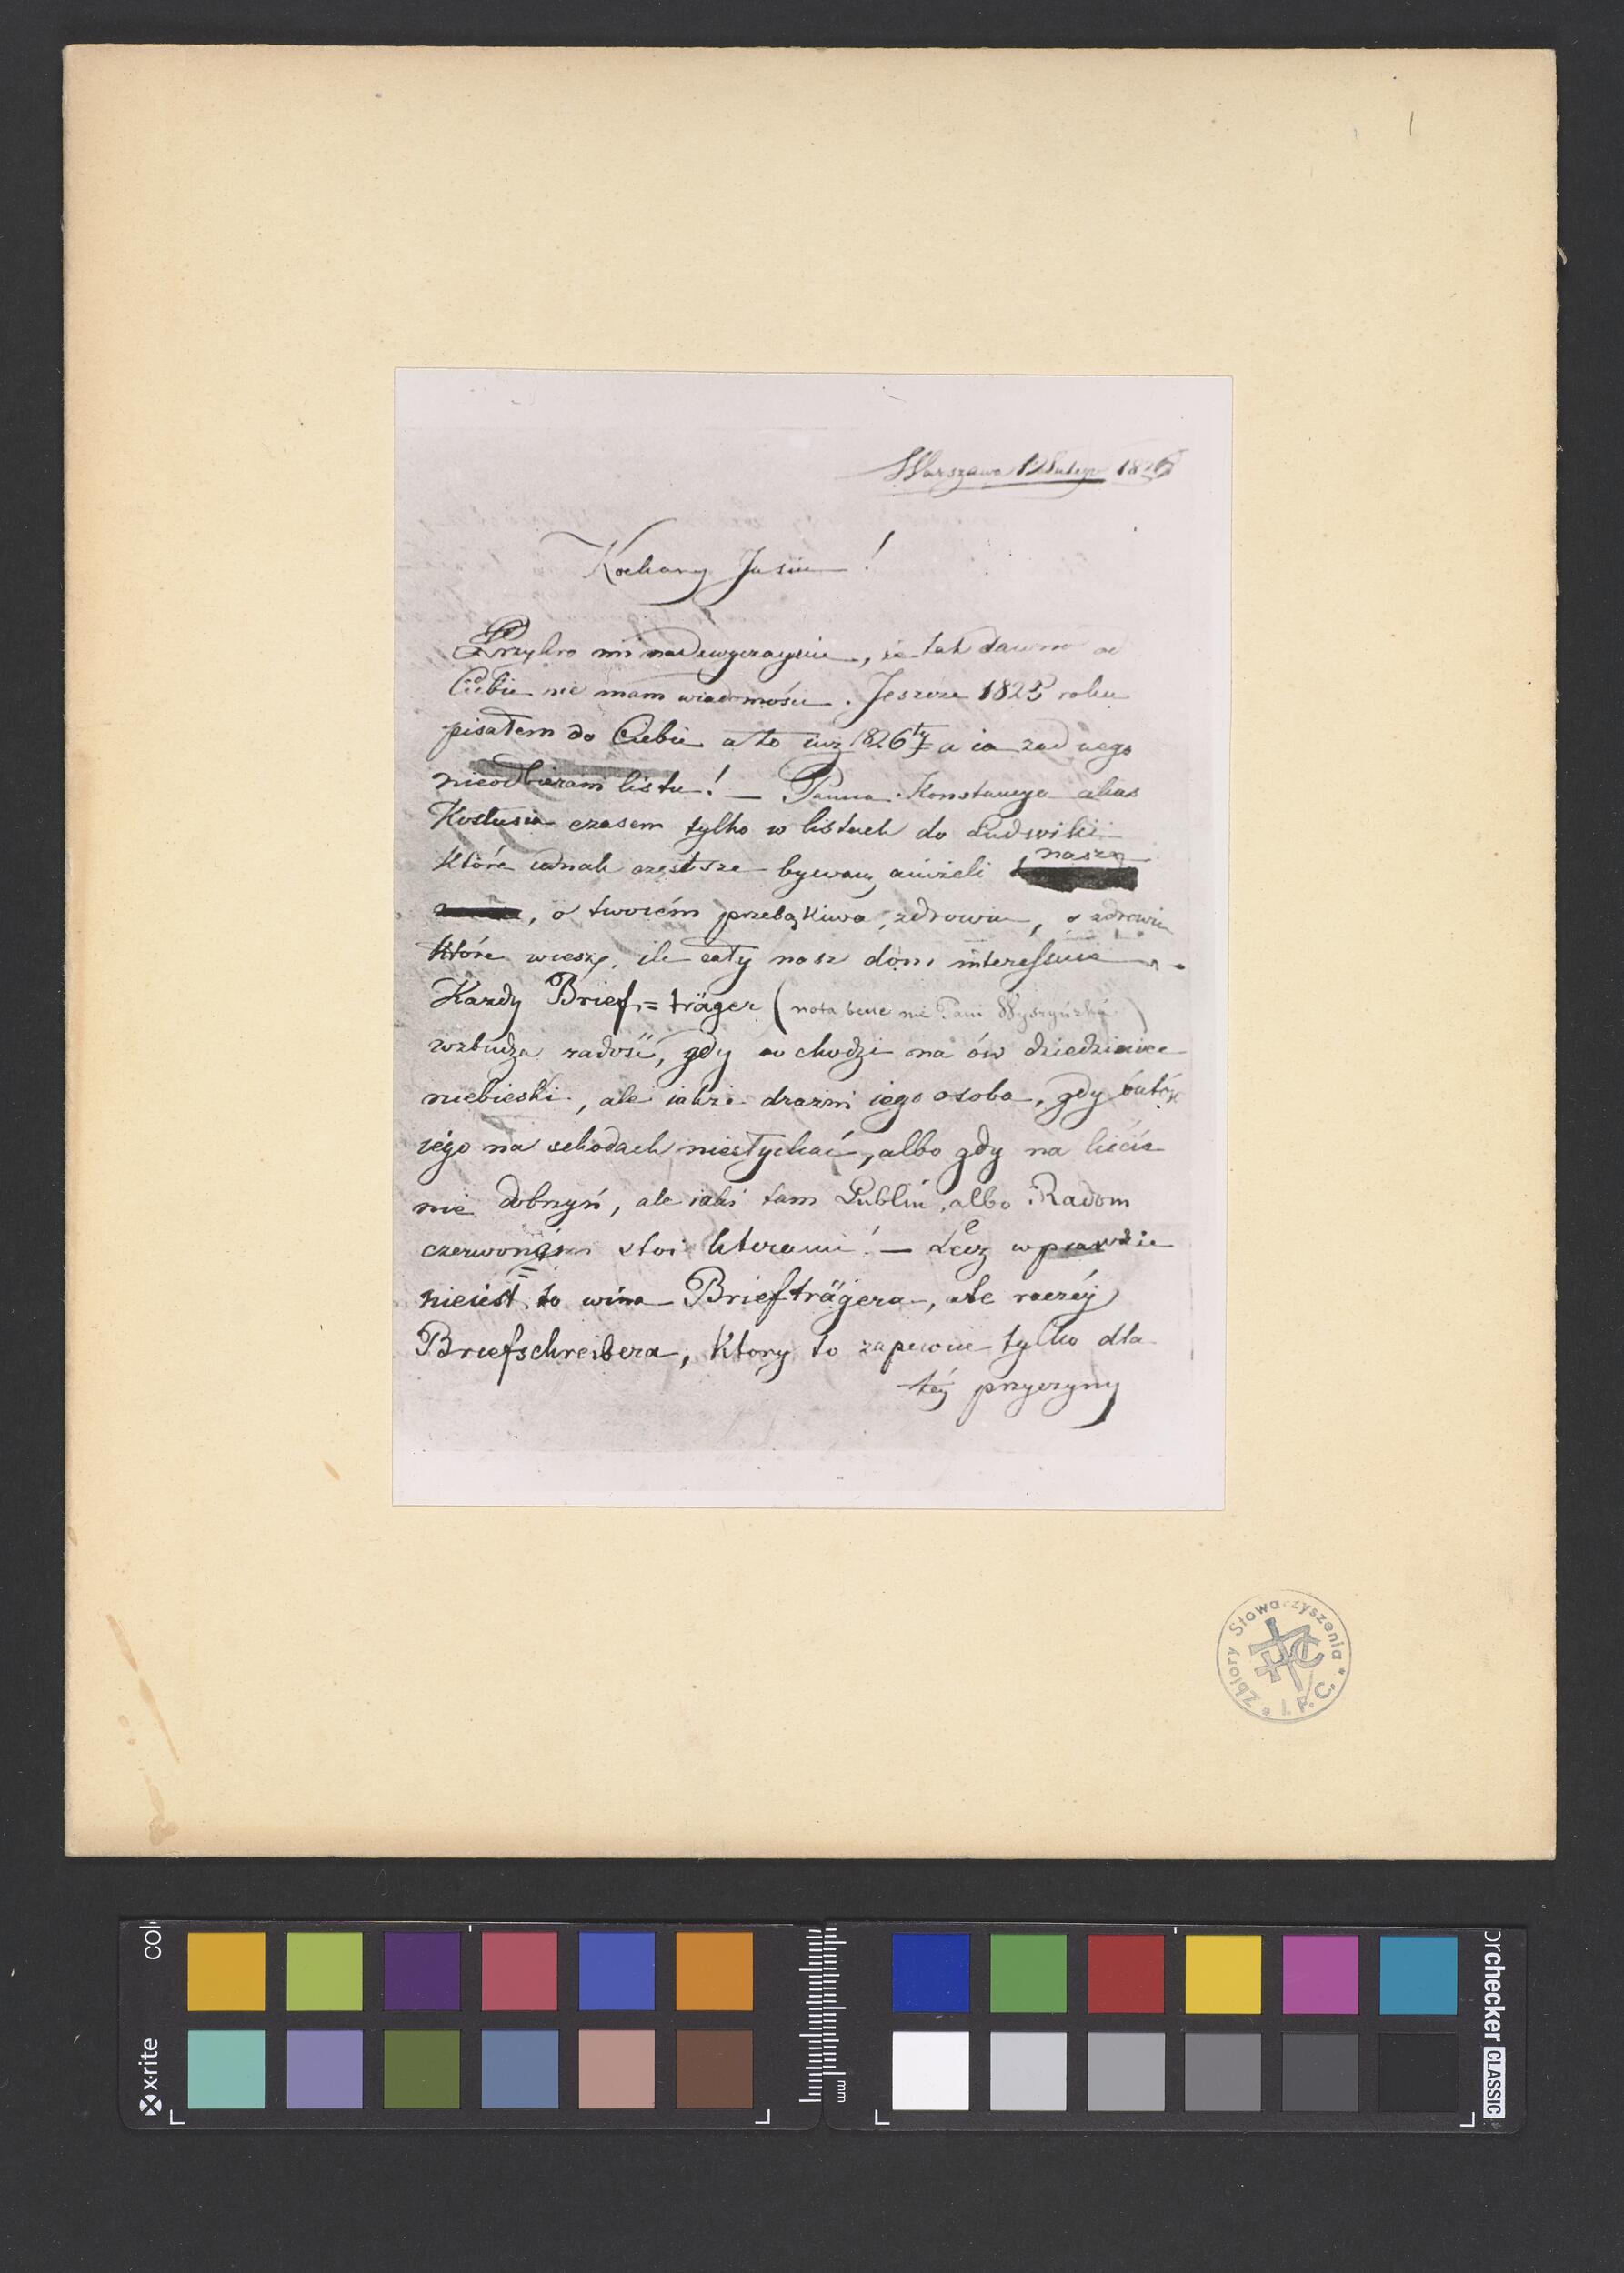 Warszawa 12 Lutego 1826
Kochany Jasiu!
Przykro mi nadzwyczaynie, że tak dawno od
Ciebie nie mam wiadomości. Jeszcze 1825 roku
pisałem do Ciebie a to iuż 1826ty a ia żadnego
nieodbieram listu! — Panna Konstancya alias
Kostusia czasem tylko w listach do Ludwiki
które iednak częstsze bywaią aniżeli nasze
, o twoiém przebąkiwa zdrowiu, o zdrowiu
które wiesz, ile cały nasz dom interessuie.
Każdy Brief=träger (nota bene nie Pani Wyszyńska)
wzbudza radość, gdy wchodzi na ów dziedziniec
niebieski, ale iakże drażni iego osoba, gdy bótów
iégo na schodach niesłychać, albo gdy na liście
nie dobrzyń, ale iakiś tam Lublin, albo Radom
czerwonémi stoi literami! — Lecz wprawdzie
nieiest to wina Briefträgera, ale raczéy
Briefschreibera, Który to zapewne tylko dla
téy przyczyny
Zbiory Stowarzyszenia • I. F. C. •
x·rite
colorchecker CLASSIC
mm